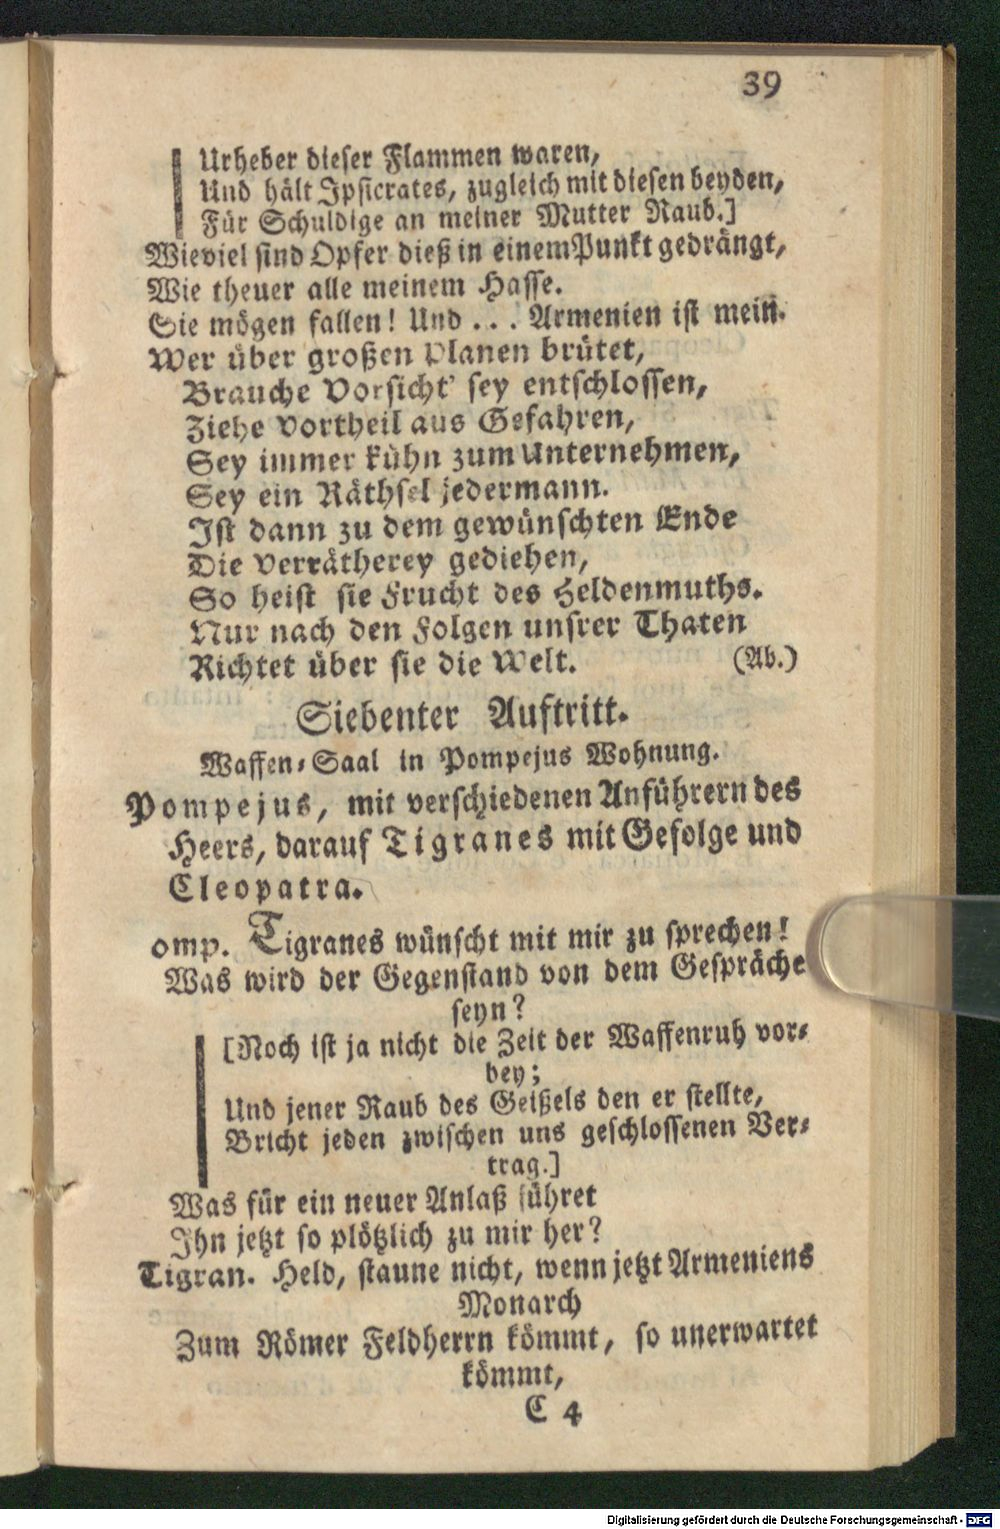 39
Urheber dieser Flammen waren,
Und hält Ipsicrates, zugleich mit diesen beyden,
Für Schuldige an meiner Mutter Raub.]
Wieviel sind Opfer dieß in einem Punkt gedrängt,
Wie theuer alle meinem Hasse.
Sie mögen fallen! Und ... Armenien ist mein.
Wer über großen Planen brütet,
Brauche Vorsicht' sey entschlossen,
Ziehe Vortheil aus Gefahren,
Sey immer kühn zum Unternehmen,
Sey ein Räthsel jedermann.
Ist dann zu dem gewünschten Ende
Die Verrätherey gediehen,
So heist sie Frucht des Heldenmuths.
Nur nach den Folgen unsrer Thaten
Richtet über sie die Welt. (Ab.)
Siebenter Auftritt.
Waffen-Saal in Pompejus Wohnung.
Pompejus, mit verschiedenen Anführern des
Heers, darauf Tigranes mit Gefolge und
Cleopatra.
omp. Tigranes wünscht mit mir zu sprechen!
Was wird der Gegenstand von dem Gespräche
seyn?
[Noch ist ja nicht die Zeit der Waffenruh vor-
bey;
Und jener Raub des Geißels den er stellte,
Bricht jeden zwischen uns geschlossenen Ver-
trag.]
Was für ein neuer Anlaß führet
Ihn jetzt so plötzlich zu mir her?
Tigran. Held, staune nicht, wenn jetzt Armeniens
Monarch
Zum Römer Feldherrn kömmt, so unerwartet
kömmt,
C 4
Digitalisierung gefördert durch die Deutsche Forschungsgemeinschaft - DFG